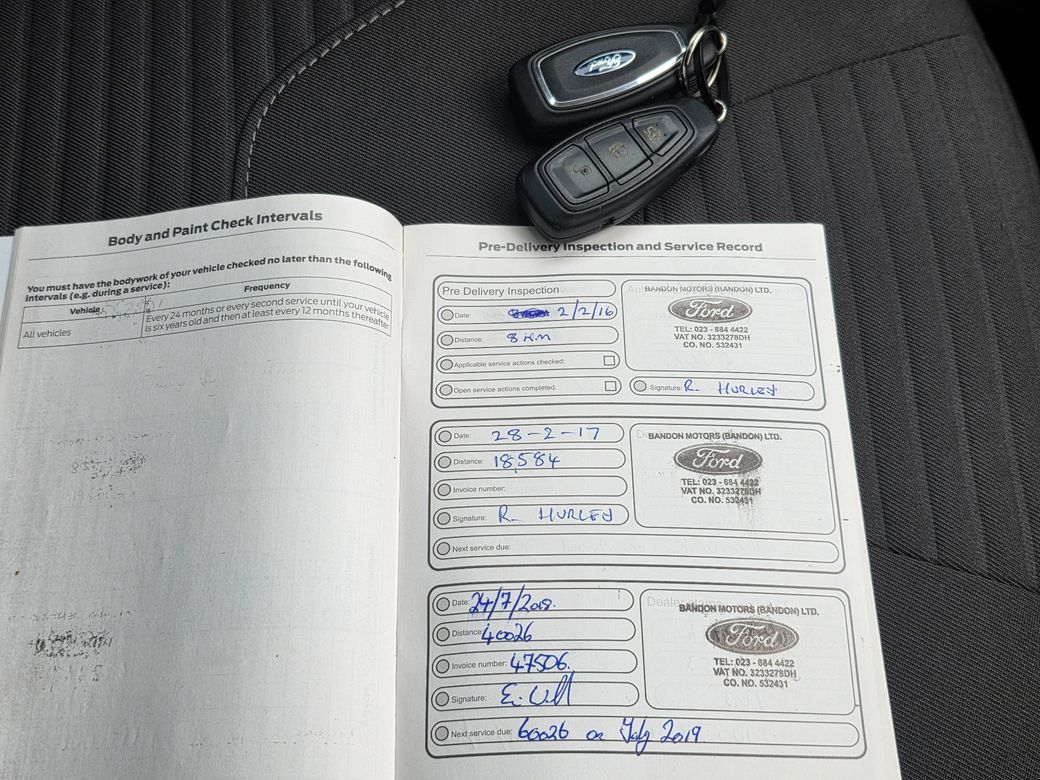 Ford
Body and Paint Check Intervals
You must have the bodywork of your vehicle checked no later than the following
intervals (e.g. during a service):
Vehicle Frequency
All vehicles Every 24 months or every second service until your vehicle
is six years old and then at least every 12 months thereafter
Pre-Delivery Inspection and Service Record
Pre Delivery Inspection
Date: 2/2/16
Distance: 8 KM
Applicable service actions checked:
Open service actions completed:
BANDON MOTORS (BANDON) LTD.
Ford
TEL: 023 - 884 4422
VAT NO. 3233278DH
CO. NO. 532431
Signature: R. HURLEY
Date: 28-2-17
Distance: 18,584
Invoice number:
Signature: R. HURLEY
Next service due:
BANDON MOTORS (BANDON) LTD.
Ford
TEL: 023 - 884 4422
VAT NO. 3233278DH
CO. NO. 532431
Date: 24/7/2018.
Distance: 40026
Invoice number: 47506.
Signature:
Next service due: 60026 or July 2019
BANDON MOTORS (BANDON) LTD.
Ford
TEL: 023 - 884 4422
VAT NO. 3233278DH
CO. NO. 532431